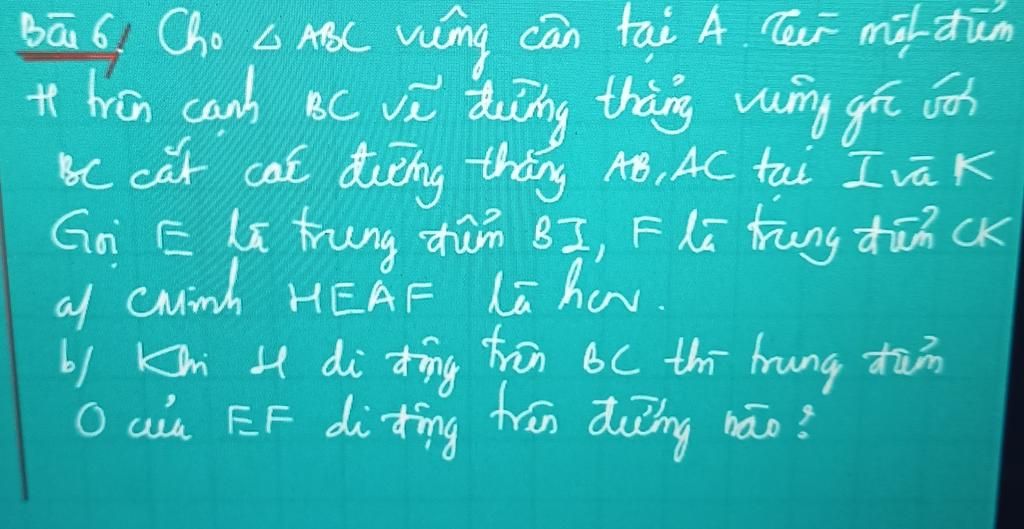 Bài 6/ Cho △ ABC vuông cân tại A. Từ một điểm
H trên cạnh BC vẽ đường thẳng vuông góc với
BC cắt các đường thẳng AB, AC tại I và K
Gọi E là trung điểm BI, F là trung điểm CK
a/ CMinh HEAF là hcn.
b/ Khi H di động trên BC thì trung điểm
O của EF di động trên đường nào?